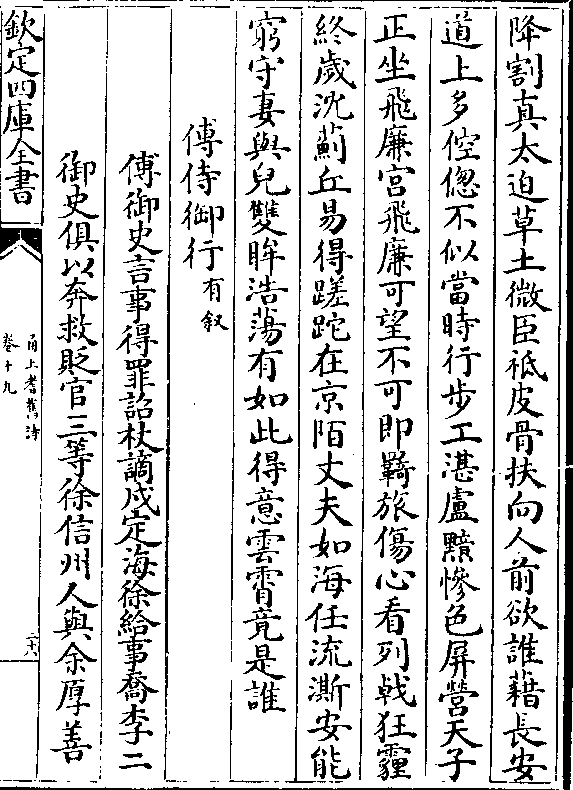 降割真太迫草土微臣祇皮骨扶向人前欲誰藉長安
道上多倥偬不似當時行步工湛盧黯慘色屏營天子
正坐飛廉宫飛廉可望不可即羇旅傷心看列㦸狂霾
終歲沈薊丘易得蹉跎在京陌丈夫如海任流澌安能
窮守妻與兒雙眸浩蕩有如此得意雲霄竟是誰
傅侍御行有叙
傅御史言事得罪詔杖謫戍定海徐給事喬李二
御史俱以奔救貶官三等徐信州人與余厚善
欽定四庫全書
甬上耆舊詩
卷十九
二十八